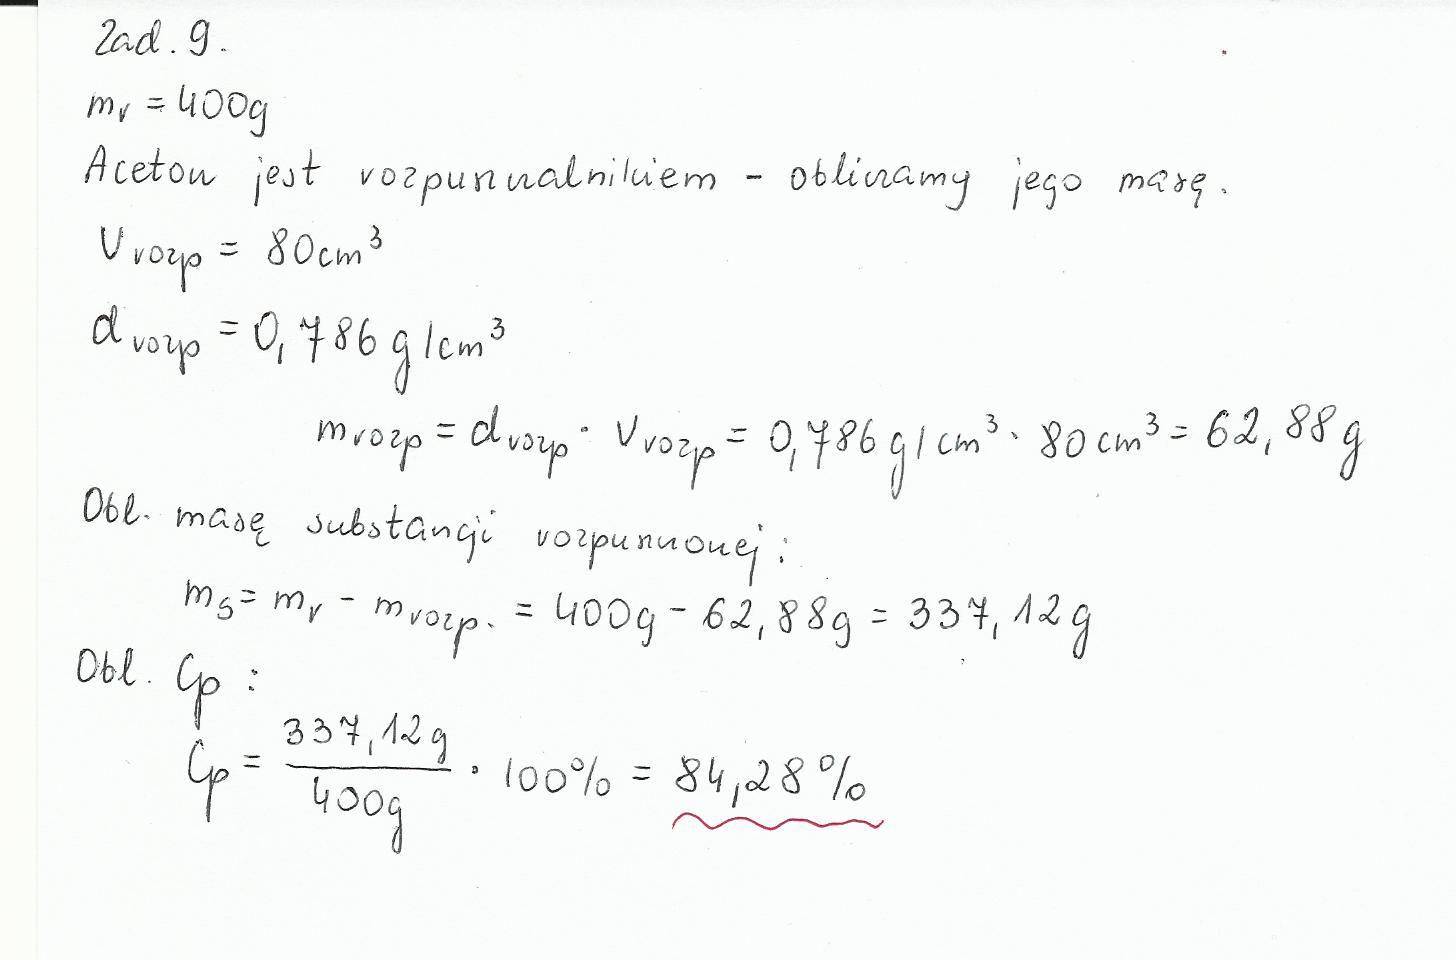 Zad. 9.
mr = 400g
Aceton jest rozpuszczalnikiem - obliczamy jego masę.
Vrozp = 80cm³
drozp = 0,786 g/cm³
mrozp = drozp · Vrozp = 0,786 g/cm³ · 80 cm³ = 62,88g
Obl. masę substancji rozpuszczonej:
ms = mr - mrozp. = 400g - 62,88g = 337,12g
Obl. Cp :
Cp = 337,12g / 400g · 100% = 84,28%